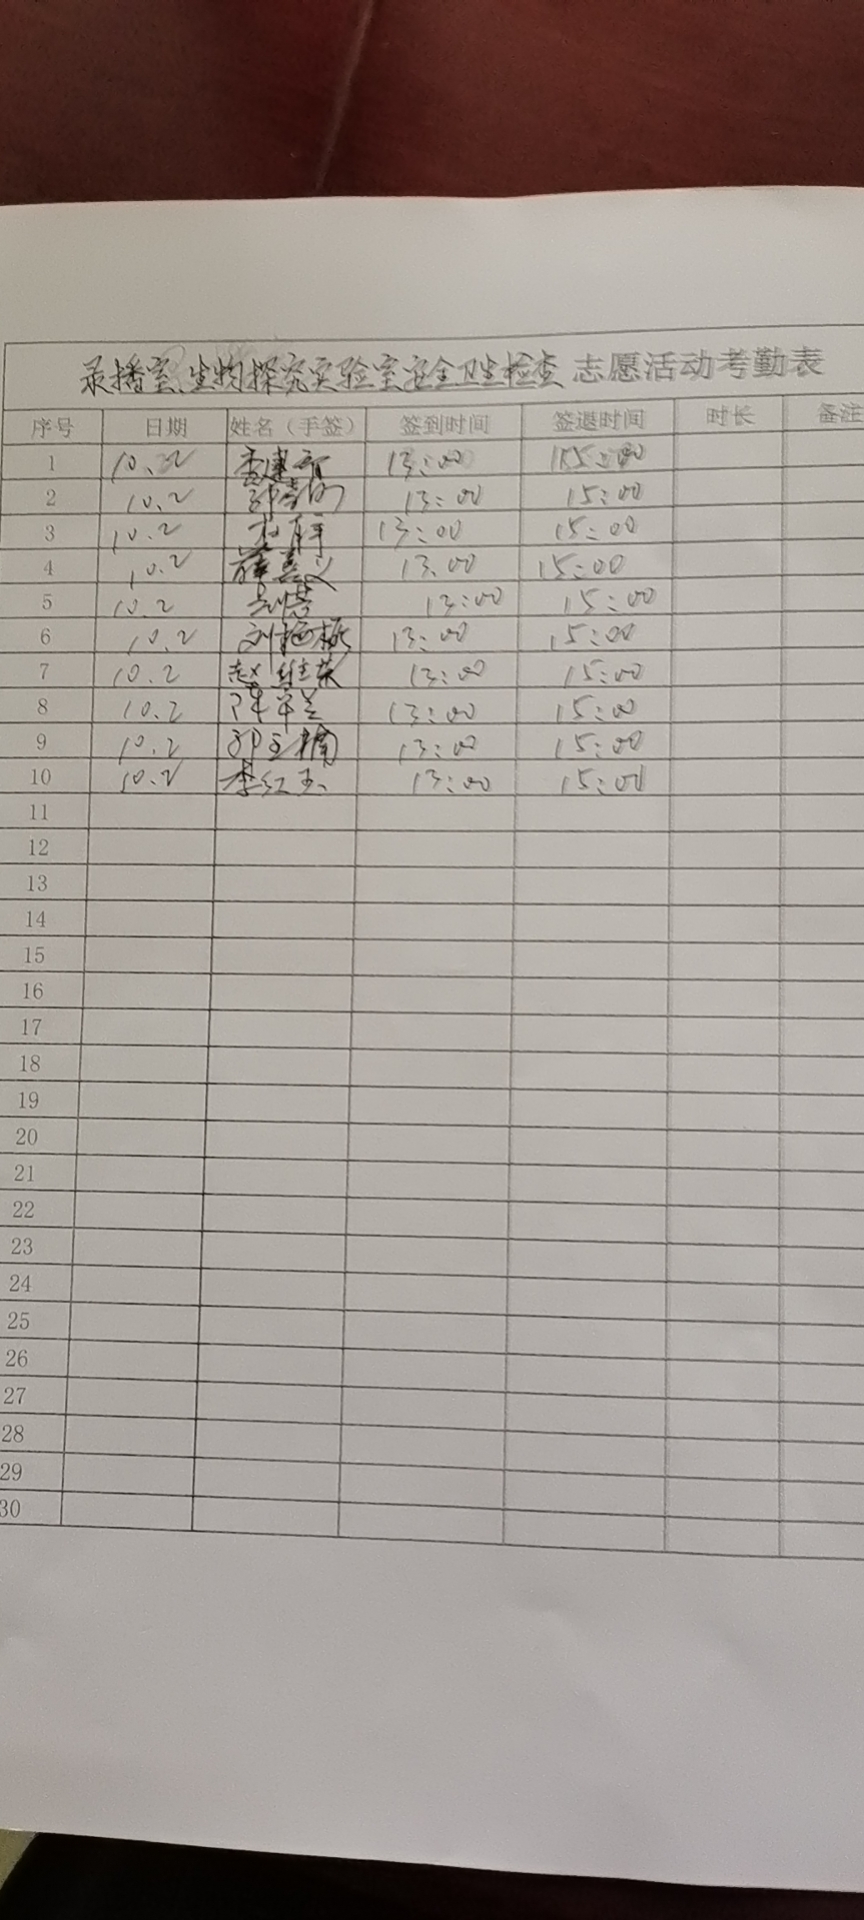 录播室、生物探究实验室安全卫生检查志愿活动考勤表
序号 日期 姓名（手签） 签到时间 签退时间 时长 备注
1 10.2 13:00
2 10.2 13:00 15:00
3 10.2 13:00 15:00
4 10.2 薛喜义 13.00 15:00
5 10.2 13:00 15:00
6 10.2 刘梅桃 13:00 15:00
7 10.2 赵维英 13:00 15:00
8 10.2 13:00 15:00
9 10.2 郭玉楠 13:00 15:00
10 10.2 李红玉 13:00 15:00
11
12
13
14
15
16
17
18
19
20
21
22
23
24
25
26
27
28
29
30